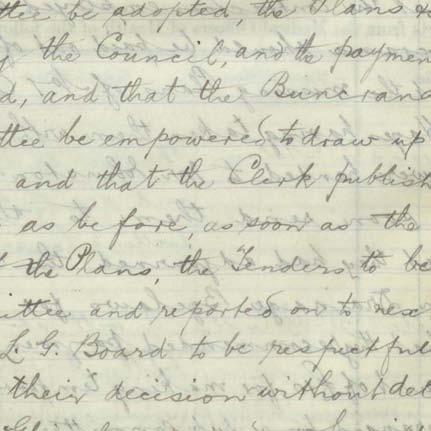 ttee be adopted, the Plans
the Council, and the paymen
d, and that the Buncrana
ttee be empowered to draw up
and that the Clerk publish
as before, as soon as the
the Plans, the Tenders, to be
ittee and reported on to nex
L. G. Board to be respectful
their decision without del